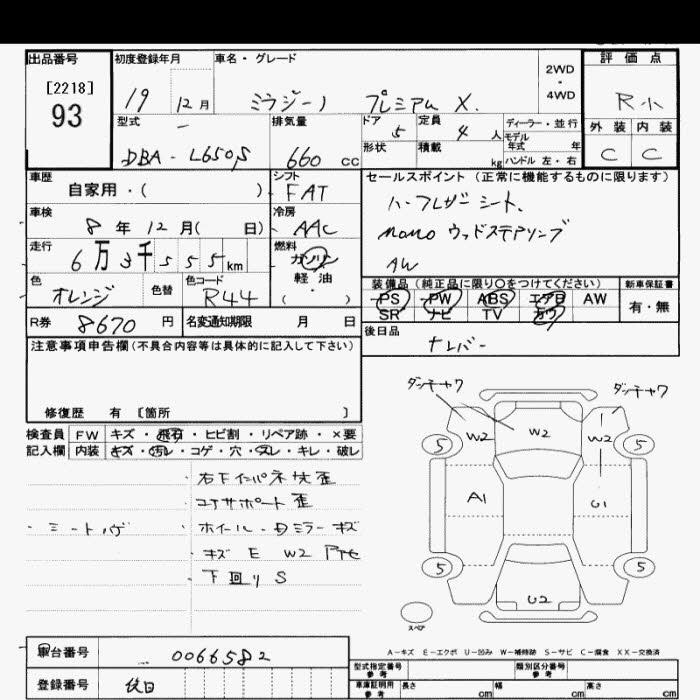 出品番号 初度登録年月 車名・グレード 評価点
[2218] 2WD
・
93 19 12月 ミラジーノ プレミアム X. 4WD R小
型式 排気量 ドア 定員 ディーラー・並行 外装 内装
DBA - L650S 660 cc 5 4人 モデル
年式 年
形状 積載 kg ハンドル 左・右 C C
車歴 シフト セールスポイント (正常に機能するものに限ります)
自家用・( ) FAT ハーフレザーシート、
車検 冷房
8年12月( 日) AAC momo ウッドステアリング
走行 燃料
6万3千555km ガソリン AW
色 色替 色コード 軽油 装備品 (純正品に限り○をつけてください) 新車保証書
オレンジ R44 ( ・ ) PS PW ABS エアB AW 有・無
SR ナビ TV カワ
R券 8670円 名変通知期限 月 日 後日品
注意事項申告欄(不具合内容等は具体的に記入して下さい) ナレバー
修復歴 有 [箇所 ]
検査員 FW キズ・飛石・ヒビ割・リペア跡・×要
記入欄 内装 キズ・汚レ・コゲ・穴・スレ・キレ・破レ
ダッチャワ ダッチャワ
W2 W2 W2
5 5
右下インパネ状歪
A1 U1
コアサポート歪
・シートハゲ ホイール・Dミラーキズ
キズ E W2
5 5
下回り S
U2
スペア
A-キズ E-エクボ U-凹み W-補修跡 S-サビ C-腐食 XX-交換済
車台番号 0066582
型式指定番号 参考 類別区分番号 参考
登録番号 後日
車庫証明用 参考 長さ cm 幅 cm 高さ cm